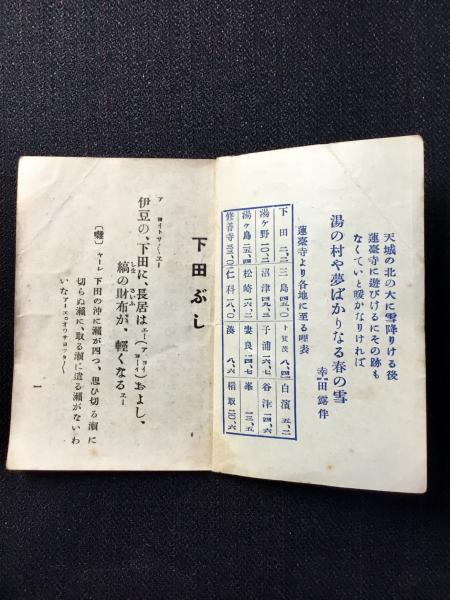 天城の北の大に雪降りける後
蓮臺寺に遊びけるにその跡も
なくていと暖かなりければ
湯の村や夢ばかりなる春の雪
幸田露伴
蓮臺寺より各地に至る哩表
下田 二、二 三島 四五、〇 下賀茂 八、四 白濱 五、二
湯ヶ野 一〇、二 沼津 四九、三 子浦 一六、七 谷津 一四、四
湯ヶ島 二五、四 松崎 一六、二 妻良 一四、七 峯 一三、五
修善寺 三三、〇 仁科 一八、〇 湊 八、六 稲取 二〇、六
下田ぶし
ア ヨイトサ〱 エー
伊豆の、下田に、長居はエー(アヨーイ)およし、
縞の財布が、軽くなるエー
しま さいふ
〔囃〕ヤーレ 下田の沖に瀬が四つ、思ひ切る瀬に
切らぬ瀬に、取る瀬に遣る瀬がないわ
いな
一